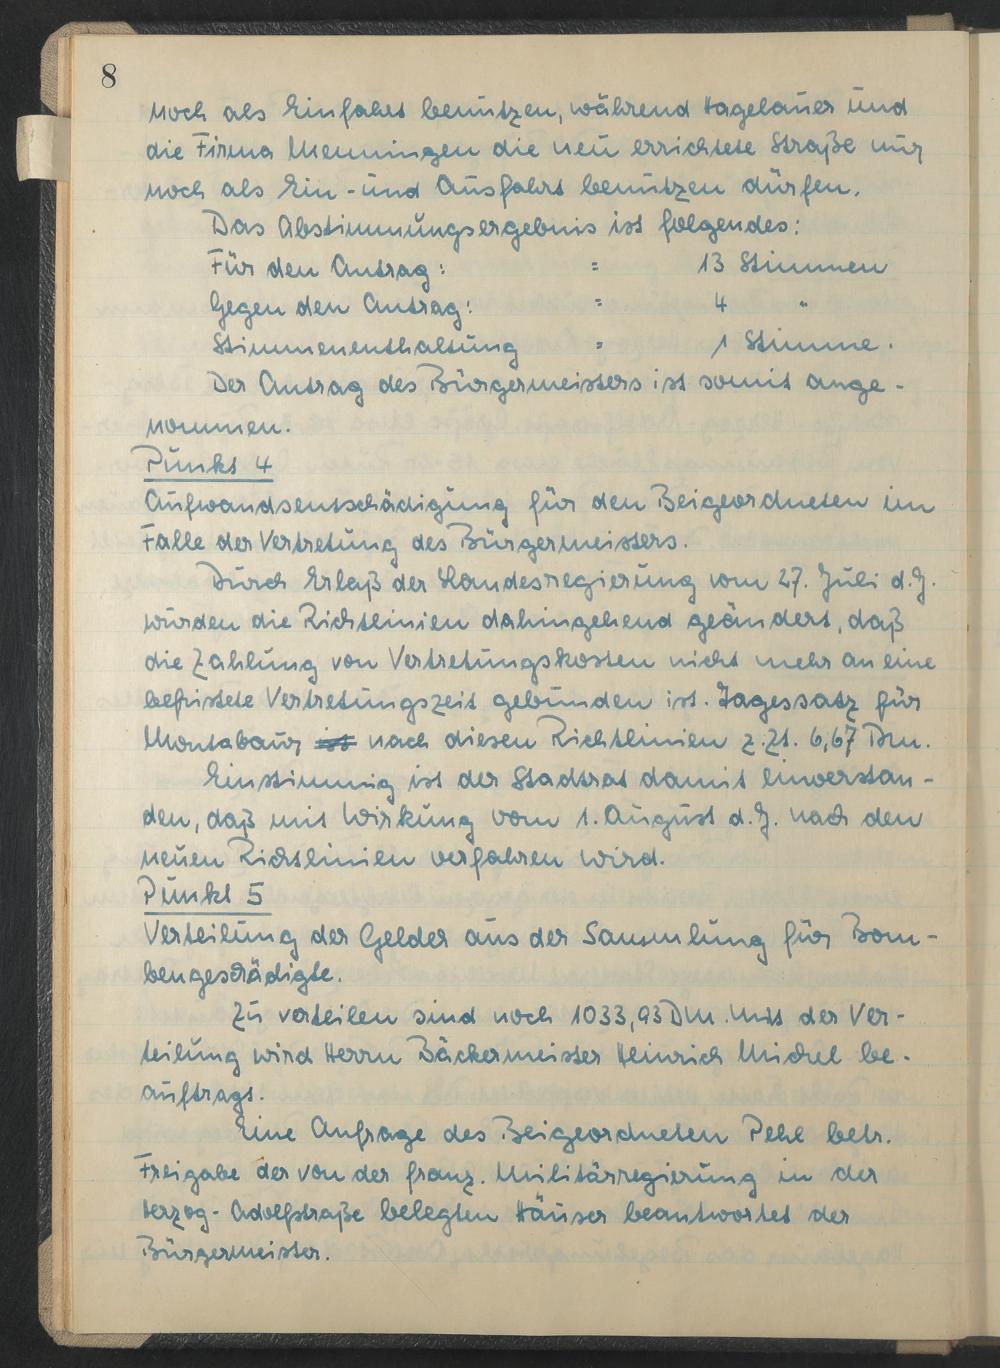 8
noch als Einfahrt benutzen, während Hagelauer und
die Firma Menningen die neu errichtete Straße nur
noch als Ein- und Ausfahrt benutzen dürfen.
Das Abstimmungsergebnis ist folgendes:
Für den Antrag: = 13 Stimmen
Gegen den Antrag: = 4 "
Stimmenenthaltung = 1 Stimme.
Der Antrag des Bürgermeisters ist somit ange-
nommen.
Punkt 4
Aufwandsentschädigung für den Beigeordneten im
Falle der Vertretung des Bürgermeisters.
Durch Erlaß der Landesregierung vom 27. Juli d.J.
wurden die Richtlinien dahingehend geändert, daß
die Zahlung von Vertretungskosten nicht mehr an eine
befristete Vertretungszeit gebunden ist. Tagessatz für
Montabaur ist nach diesen Richtlinien z.Zt. 6,67 Dm.
Einstimmig ist der Stadtrat damit einverstan-
den, daß mit Wirkung vom 1. August d.J. nach den
neuen Richtlinien verfahren wird.
Punkt 5
Verteilung der Gelder aus der Sammlung für Bom-
bengeschädigte.
Zu verteilen sind noch 1033,93 DM. Mit der Ver-
teilung wird Herrn Bäckermeister Heinrich Michel be-
auftragt.
Eine Anfrage des Beigeordneten Pehl betr.
Freigabe der von der franz. Militärregierung in der
Herzog-Adolfstraße belegten Häuser beantwortet der
Bürgermeister.